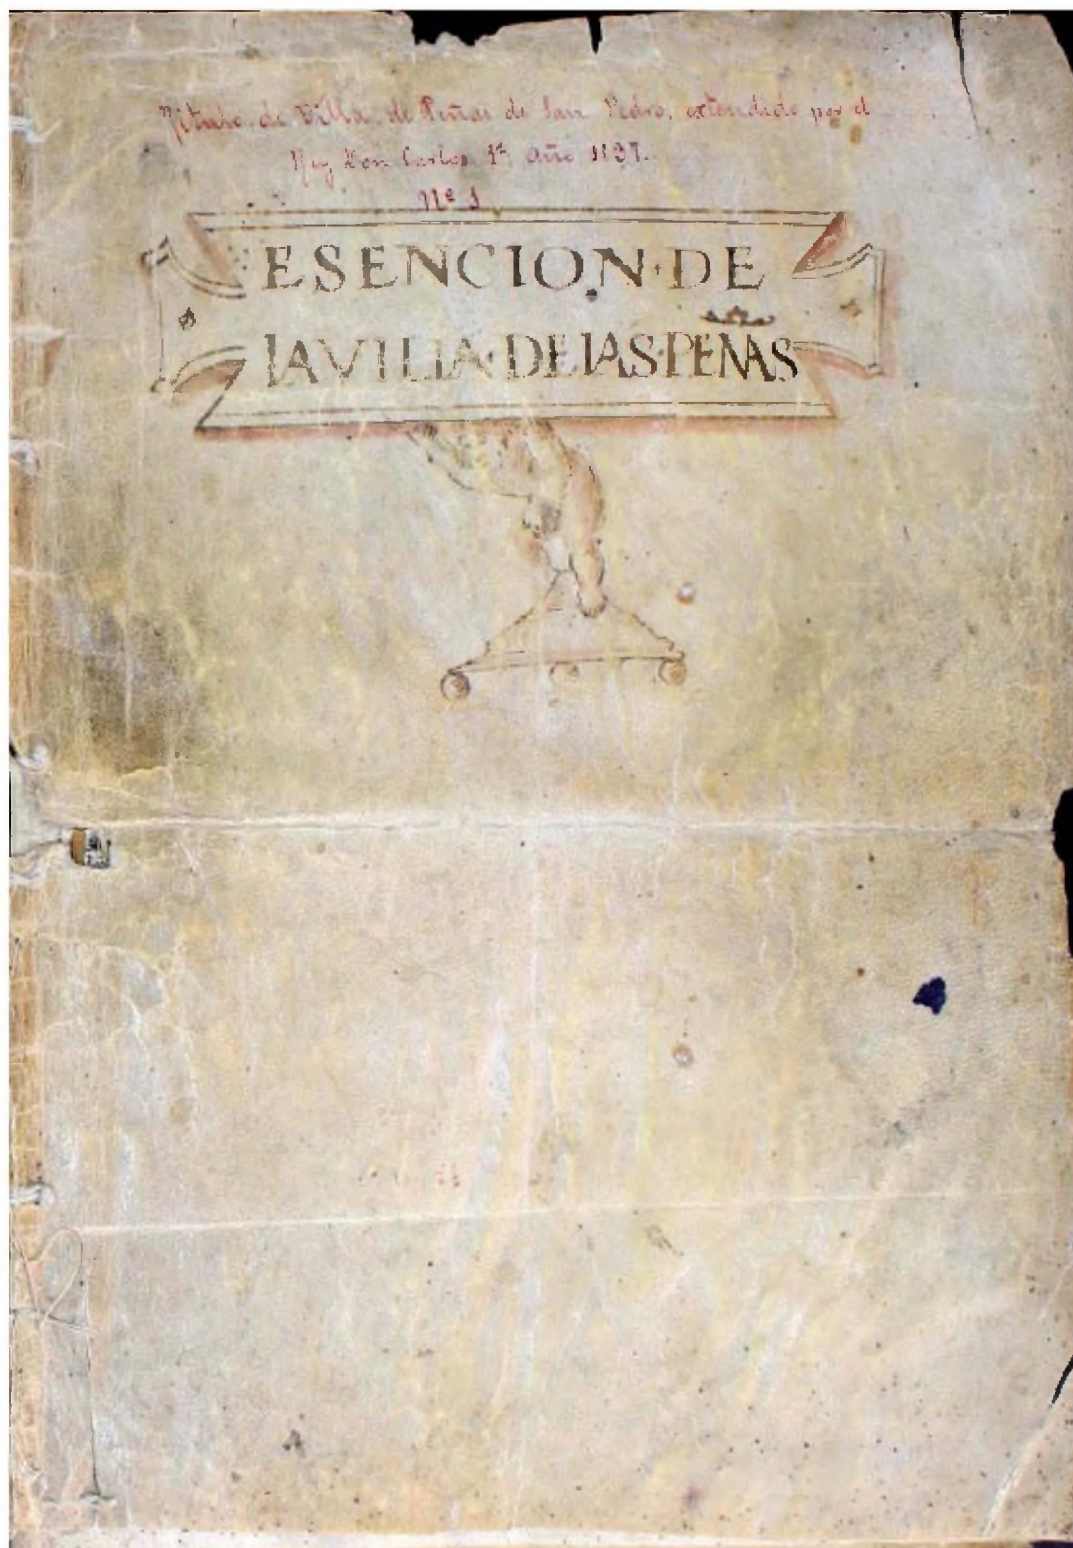 Titulo de Villa de Peñas de San Pedro, extendido por el
Rey Don Carlos 1º año 1537.
Nº 1
ESENCION·DE
LA VILLA·DE LAS·PEÑAS